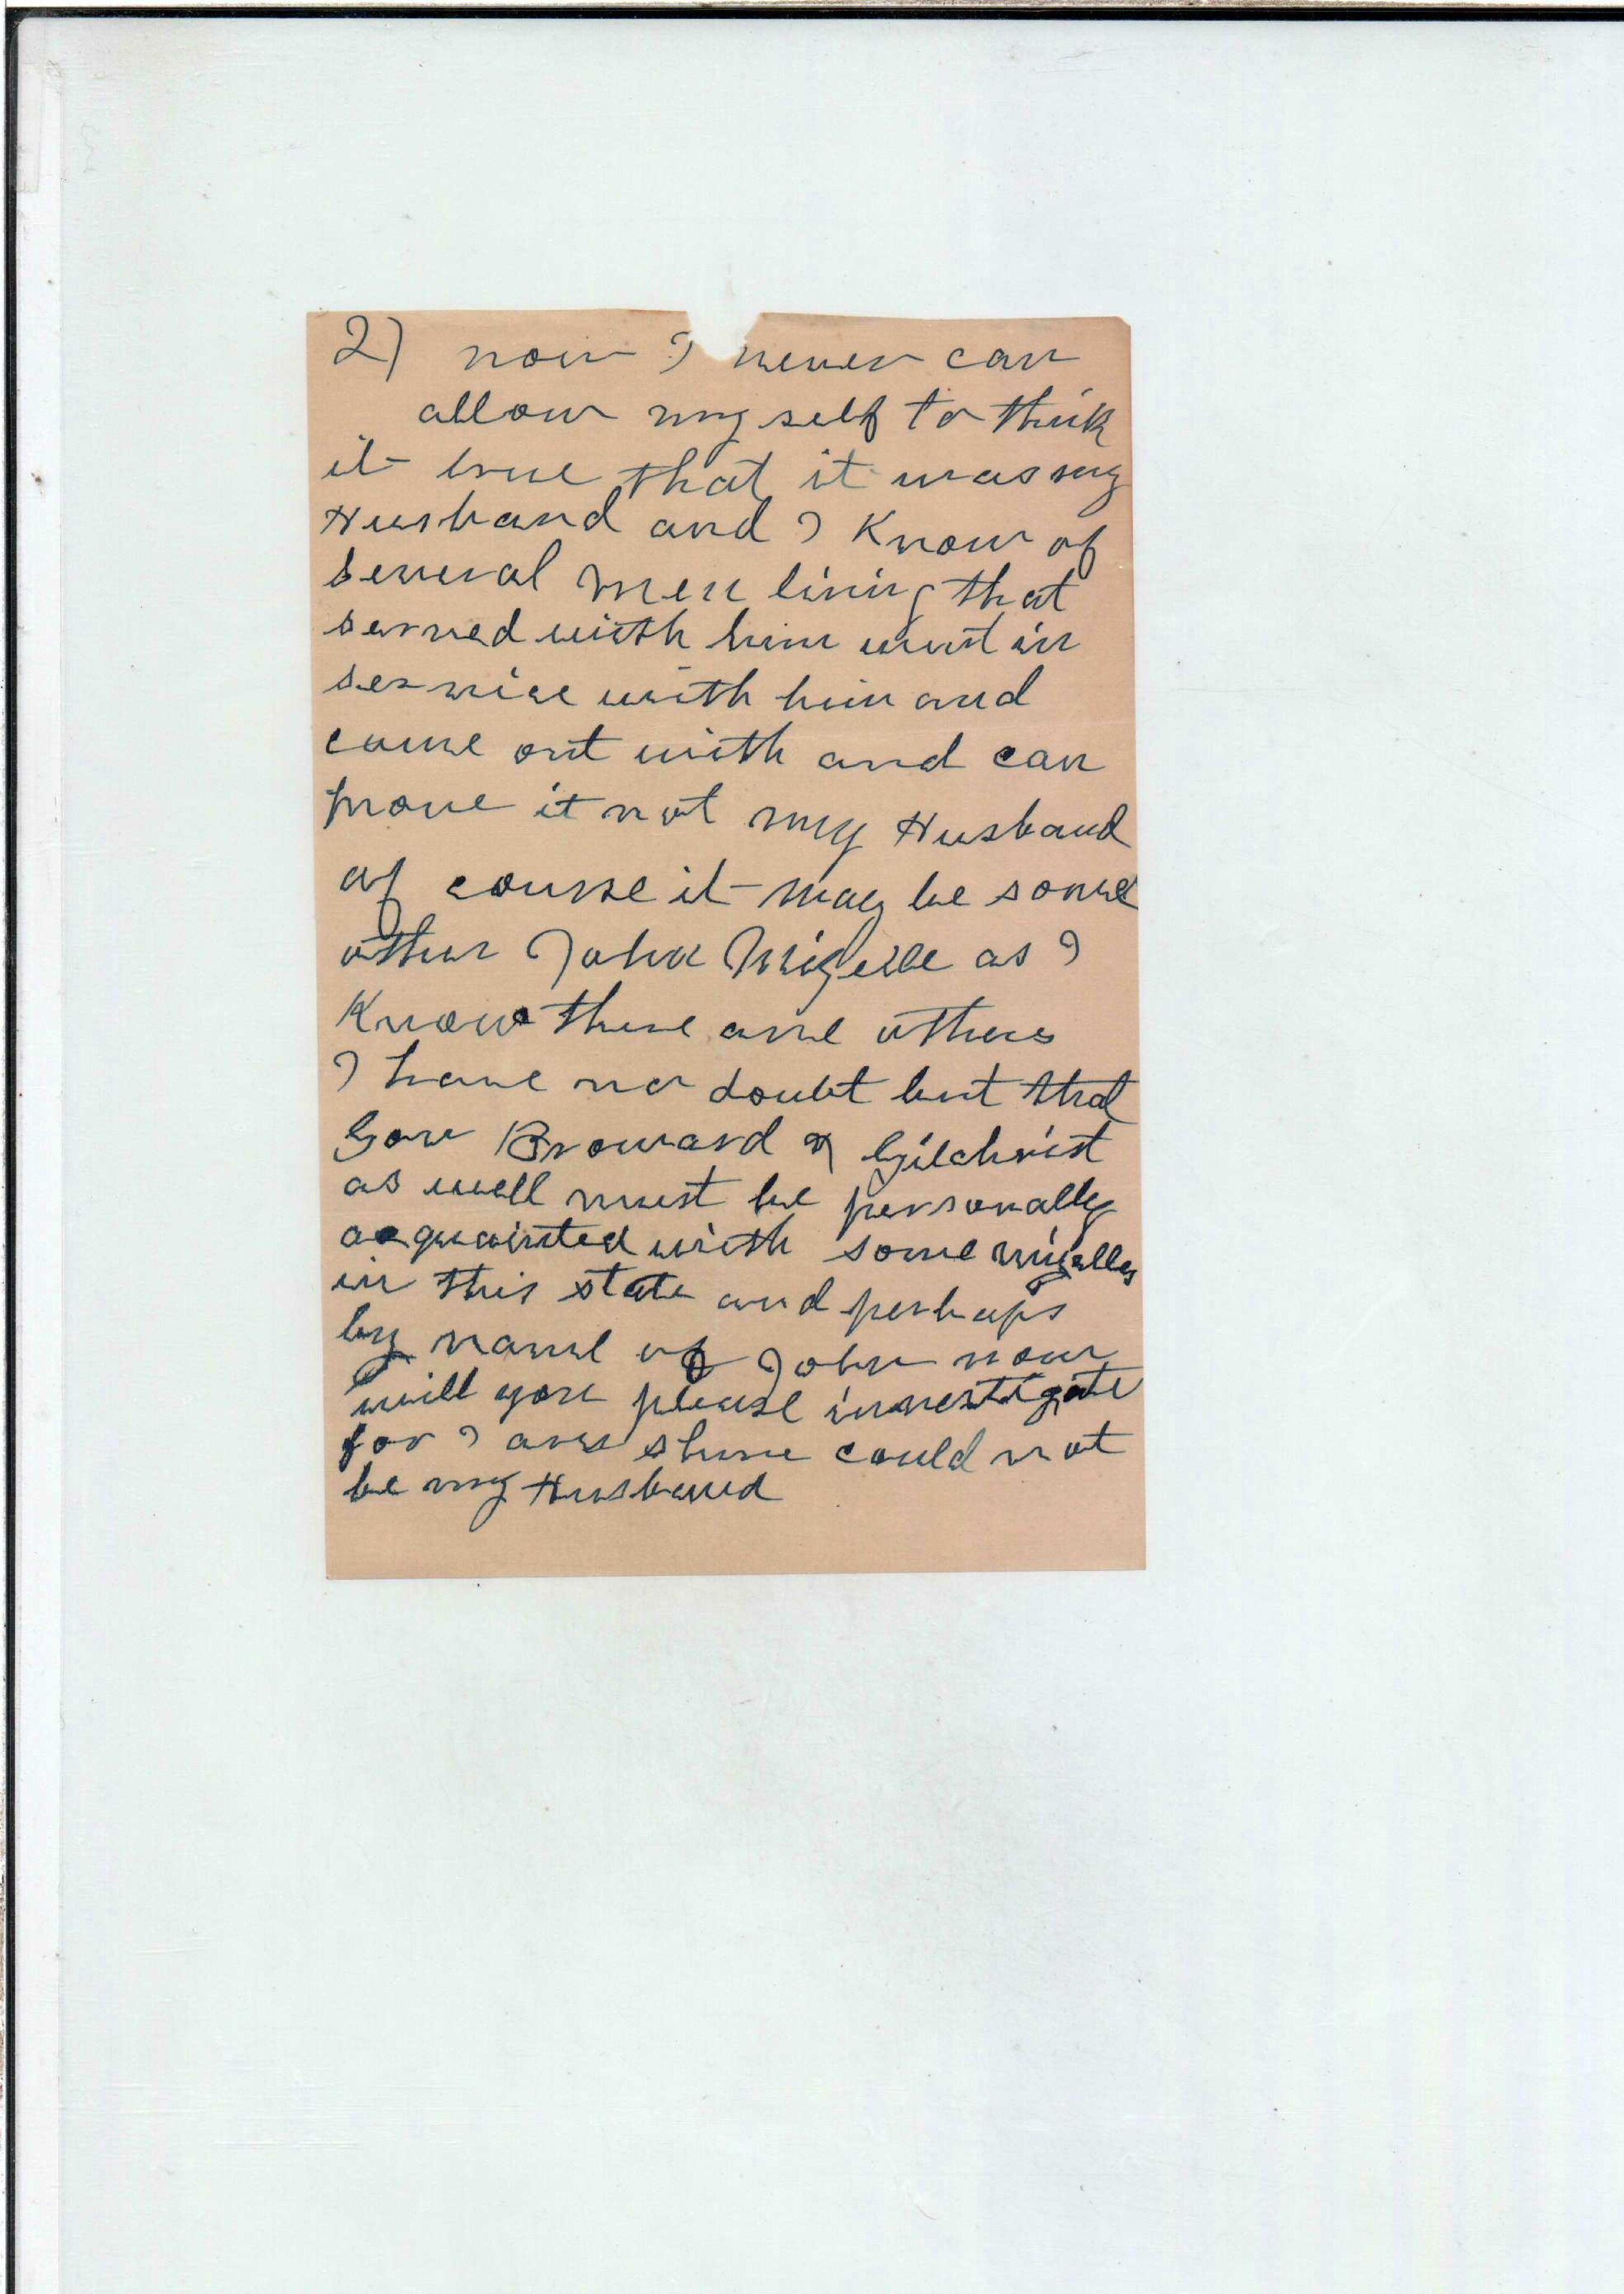 2) now I never can
allow my self to think
it true that it was my
Husband and I Know of
several men living that
served with him went in
service with him and
came out with and can
prove it not my Husband
of course it may be some
other John Mizelle as I
Know there are others
I have no doubt but that
Gov Broward & Gilchrist
as well must be personally
acquainted with some mizelles
in this state and perhaps
by name of John now
will you please investigate
for I am shure could not
be my Husband